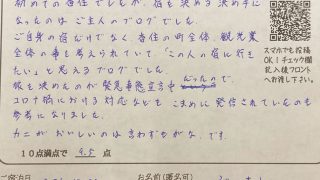 初めての香住でしたが、宿を決める決め手に
なったのは ご主人のブログでした。
ご自身の宿だけでなく 香住の町全体、観光業
全体の事を考えられていて「この人の宿に行き
たい」と思えるブログでした。
旅を決めたのが 緊急事態宣言中だったので、
コロナ禍における対応なども こまめに発信されていたのも
参考になりました。
カニがおいしいのは言わずもがな、です。
10点満点で 9.5 点
スマホでも投稿
OK!チェック欄
記入後フロント
へお渡し下さい。
ご宿泊日
お名前(匿名可)